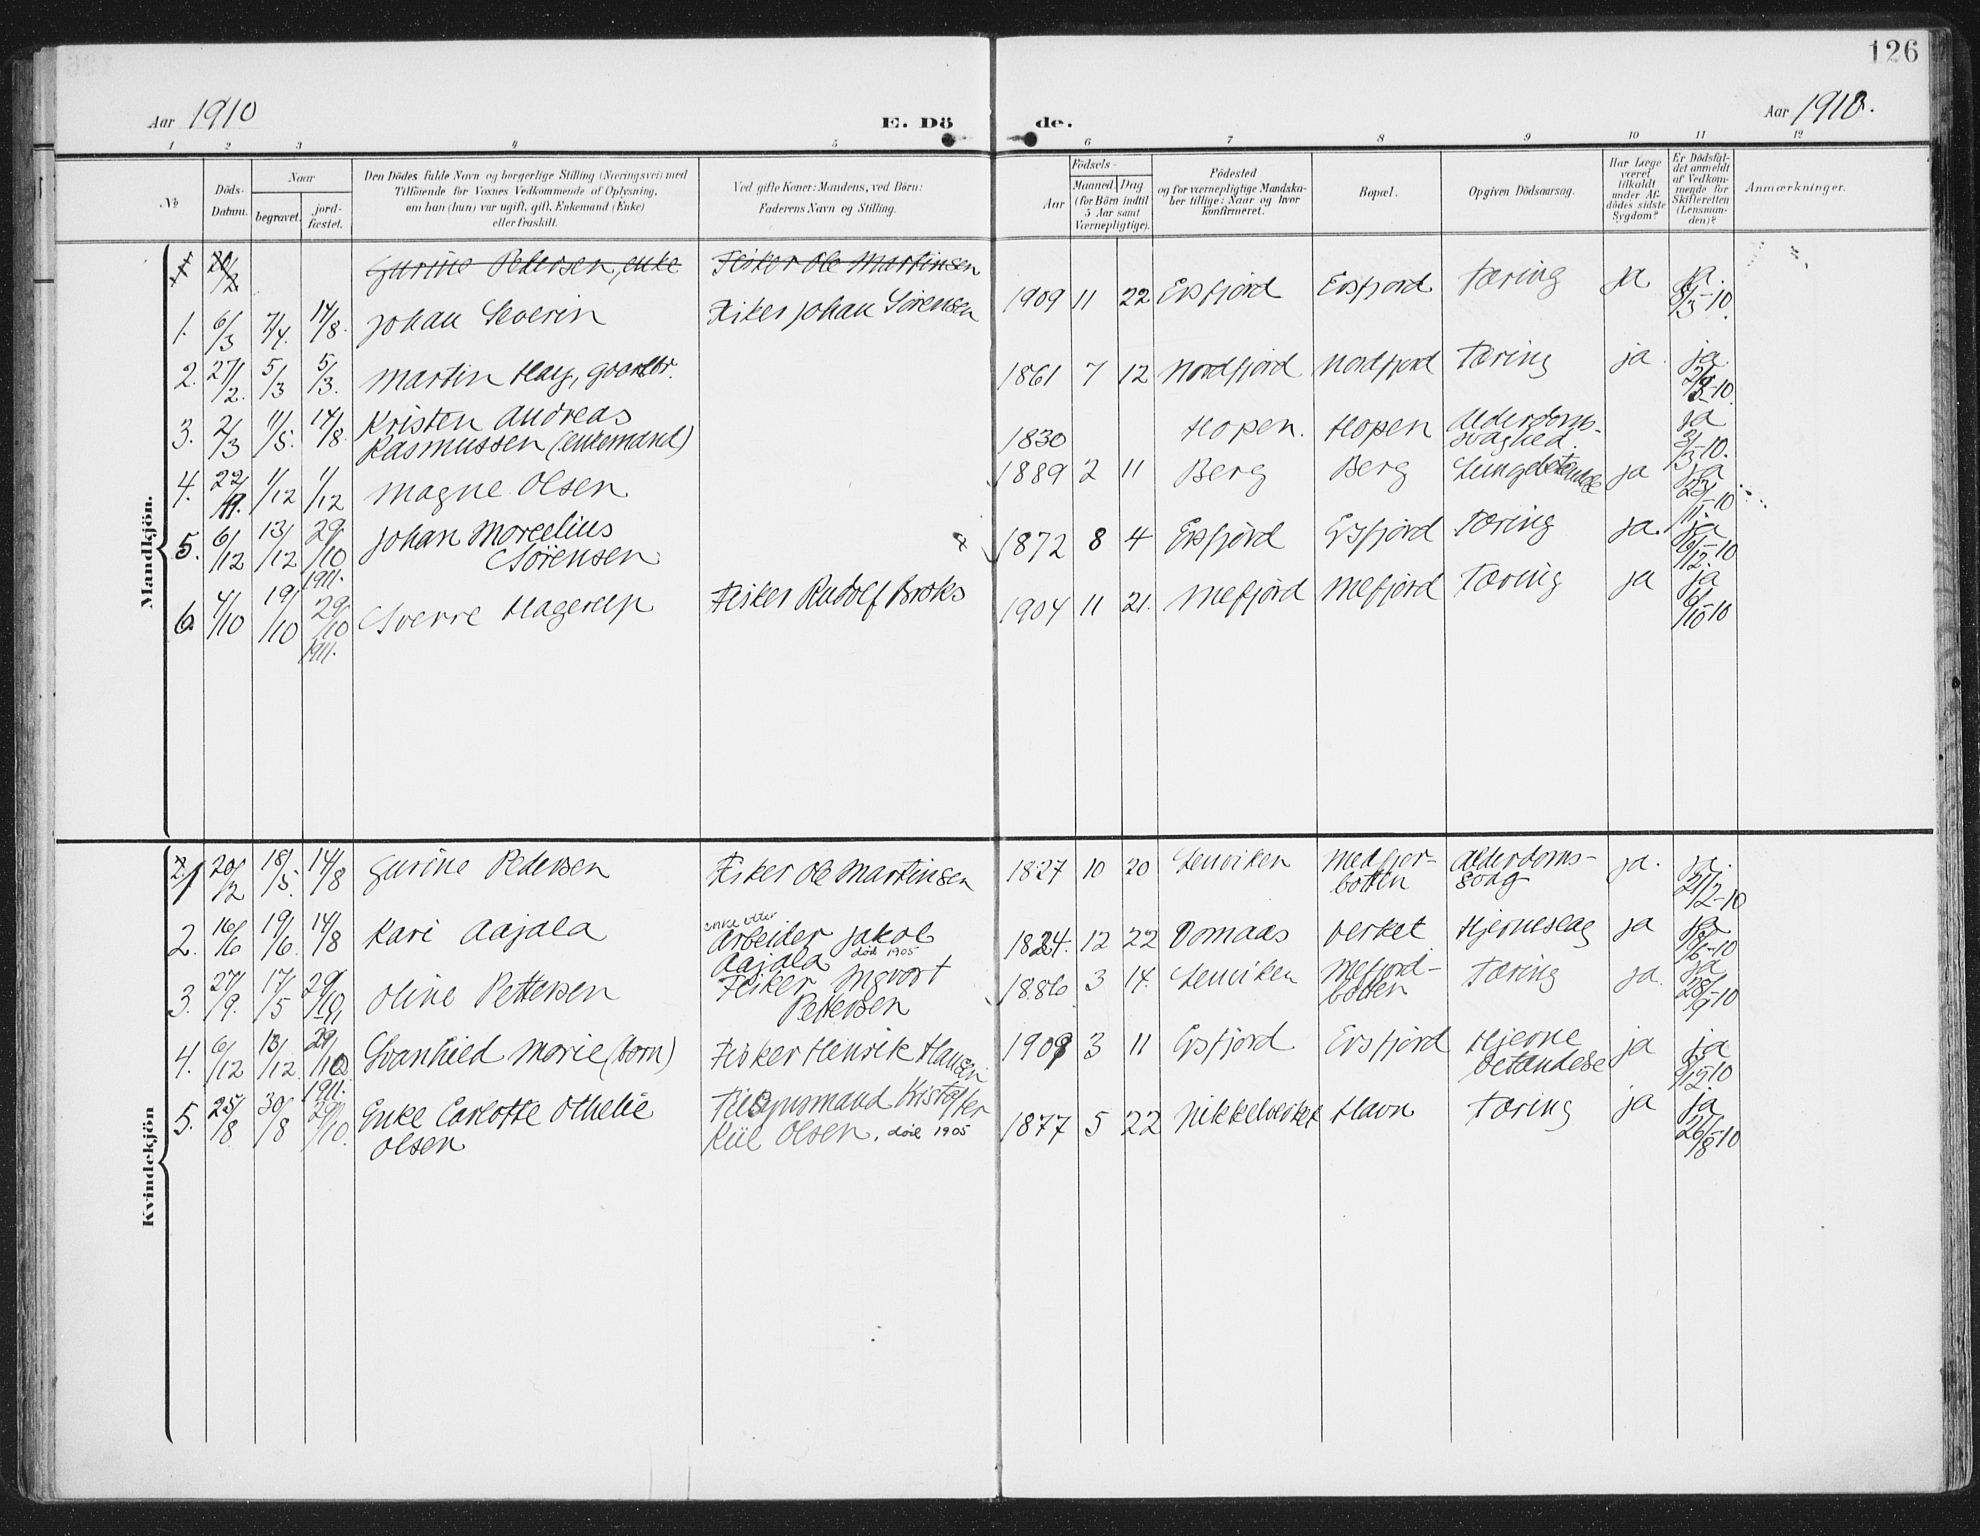 126
Aar 1910
E. Dö de.
Aar 1910.
1 2 3 4 5 6 7 8 9 10 11 12
No
Döds-Datum.
Naar
begravet.
jord-fæstet.
Den Dödes fulde Navn og borgerlige Stilling (Næringsvei) med
Tilföiende for Voxnes Vedkommende af Oplysning,
om han (hun) var ugift, gift, Enkemand (Enke)
eller fraskilt.
Ved gifte Koner: Mandens, ved Börn:
Faderens Navn og Stilling.
Födsels-
Aar
Maaned Dag
(for Börn indtil
5 Aar samt
Værnepligtige).
Födested
og for værnepligtige Mandska-
ber tillige: Naar og hvor
konfirmeret.
Bopæl.
Opgiven Dödsaarsag.
Har Læge
været
tilkaldt
under Af-
dödes sidste
Sygdom?
Er Dödsfal-
det anmeldt
af Vedkom-
mende for
Skifteretten
(Lensman-
den)?
Anmærkninger.
Mandkjön.
1 20/2 Gurine Pedersen, enke Fisker Ole Martinsen
1. 6/3 7/4. 14/8. Johan Severin Fisker Johan Sörensen 1909 11 22 Ersfjord Ersfjord Tæring ja ja 8/3-10.
2. 27/2. 5/3 5/3. Martin Hay, gaardbr. 1861 7 12 Nordfjord Nordfjord Tæring ja. ja 10
3. 2/3 11/5. 14/8. Kristen Andreas
Rasmussen (enkemand) 1830 Hopen. Hopen Alderdoms-
svaghed. ja 3/3-10.
4. 22/11. 1/12 1/12 Magne Olsen 1889 2 11 Berg Berg Lungebetændelse ja ja 23/11-10
5. 6/12 13/12 29/10 1911. Johan Marcelius
Sörensen 1872 8 4 Ersfjord Ersfjord Tæring ja. ja 6/12-10
6. 4/10 19/10 29/10 1911. Sverre Hagerup Fisker Rudolf Broks 1904 11 21. Mefjord Mefjord Tæring ja ja 10
Kvindekjön
1 20/2 18/5. 14/8 Gurine Pedersen Fisker Ole Martinsen 1827 10 20 Lenviken Medfjor-
botten Alderdoms-
svag ja. ja. 21/2-10
2. 16/6 19/6. 14/8 Kari Aajala enke efter
Arbeider Jakob
Aajala död 1905 1824. 12 22 Domaas Verket Hjerneslag ja ja 18/6-10
3. 27/9. 17/5 29/10 Oline Pettersen Fisker Ingvart
Pettersen 1886 3 14. Lenviken Mefjord-
botten Tæring ja. ja 28/9-10
4. 6/12 13/12 29/10 1911. Svanhild Marie (barn) Fisker Henrik Hansen 1909 3 11 Ersfjord Ersfjord Hjerne
betændelse ja ja 10
5. 25/8. 30/8 29/10. Enke Carlotte Othelie
Olsen Tilsynsmand Kristoffer
Kiil Olsen. död 1905 1877 5 22 Nikkelverket Havn Tæring ja ja 26/8-10